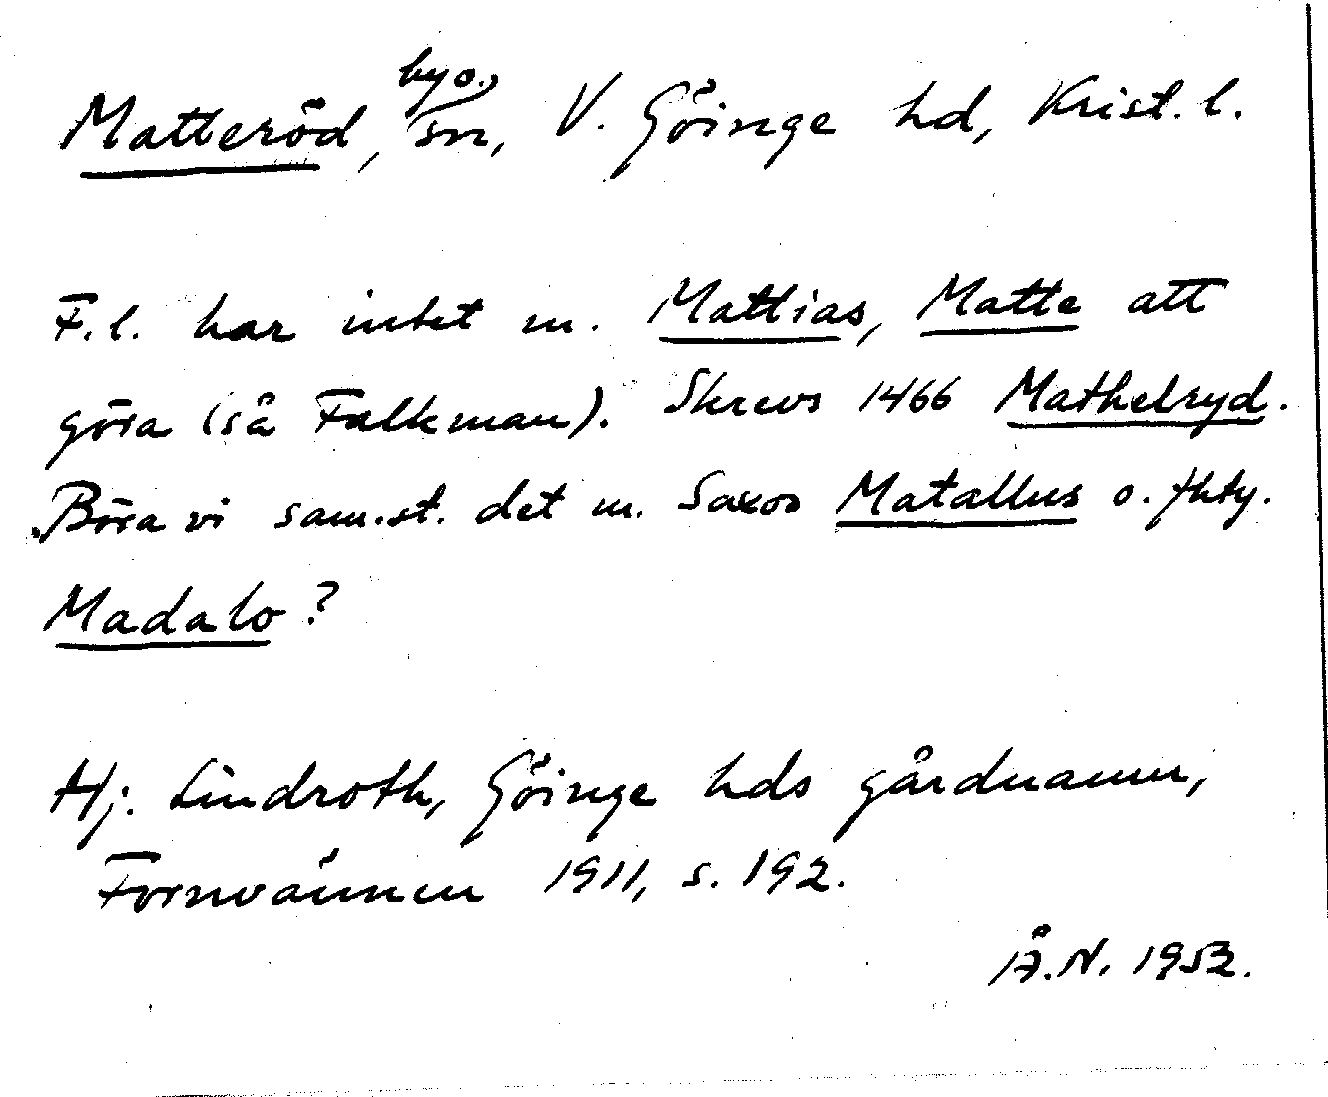 Matteröd, by o. sn, V. Göinge hd, Krist. l.
F.l. har intet m. Mattias, Matte att
göra (så Falkman). Skrevs 1466 Mathelryd.
Böra vi sam.st. det m. Saxos Matallus o. fhty.
Madalo?
Hj. Lindroth, Göinge hds gårdnamn,
Fornvännen 1911, s. 192.
Å.N. 1952.